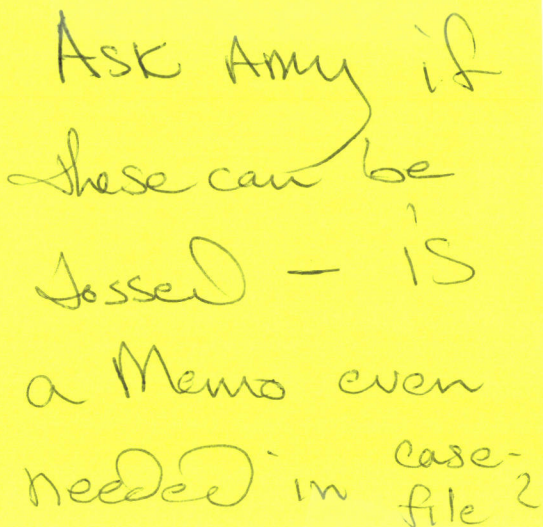 Ask Amy if
these can be
tossed — is
a Memo even
needed in case-
file?